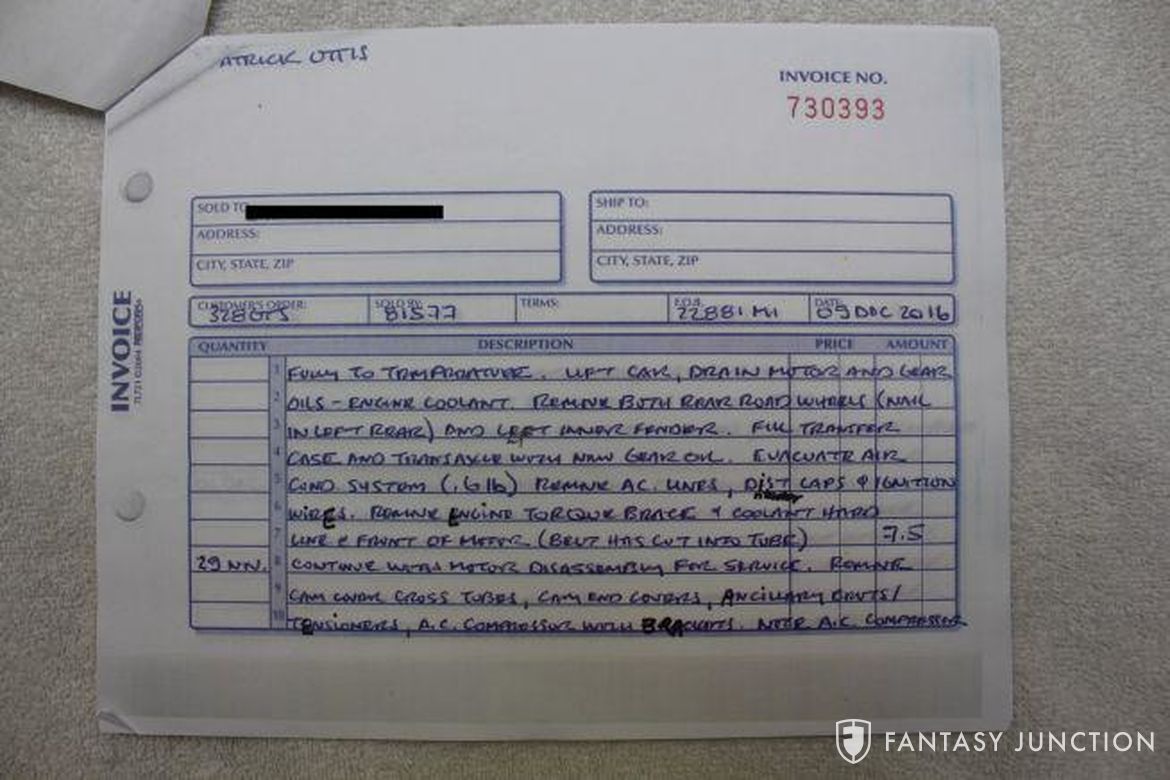 ATRICK OTTIS
INVOICE NO.
730393
SOLD TO
ADDRESS:
CITY, STATE, ZIP
SHIP TO:
ADDRESS:
CITY, STATE, ZIP
CUSTOMER'S ORDER: SOLD BY: TERMS: F.O.B. DATE
328GTS 81577 22881 MI 09 DEC 2016
INVOICE
QUANTITY DESCRIPTION PRICE AMOUNT
1 FULLY TO TEMPERATURE. LIFT CAR, DRAIN MOTOR AND GEAR
2 OILS - ENGINE COOLANT. REMOVE BOTH REAR ROAD WHEELS (NAIL
3 IN LEFT REAR) AND LEFT INNER FENDER. FILL TRANSFER
4 CASE AND TRANSAXLE WITH NEW GEAR OIL. EVACUATE AIR
5 COND SYSTEM (.6 lb) REMOVE A.C. LINES, DIST CAPS & IGNITION
6 WIRES. REMOVE ENGINE TORQUE BRACE & COOLANT HARD
7 LINE @ FRONT OF MOTOR (BELT HAS CUT INTO TUBE) 7.5
29 NOV. 8 CONTINUE WITH MOTOR DISASSEMBLY FOR SERVICE. REMOVE
9 CAM COVER CROSS TUBES, CAM END COVERS, ANCILLARY BELTS/
10 TENSIONERS, A.C. COMPRESSOR WITH BRACKETS. NOTE A.C. COMPRESSOR
FANTASY JUNCTION